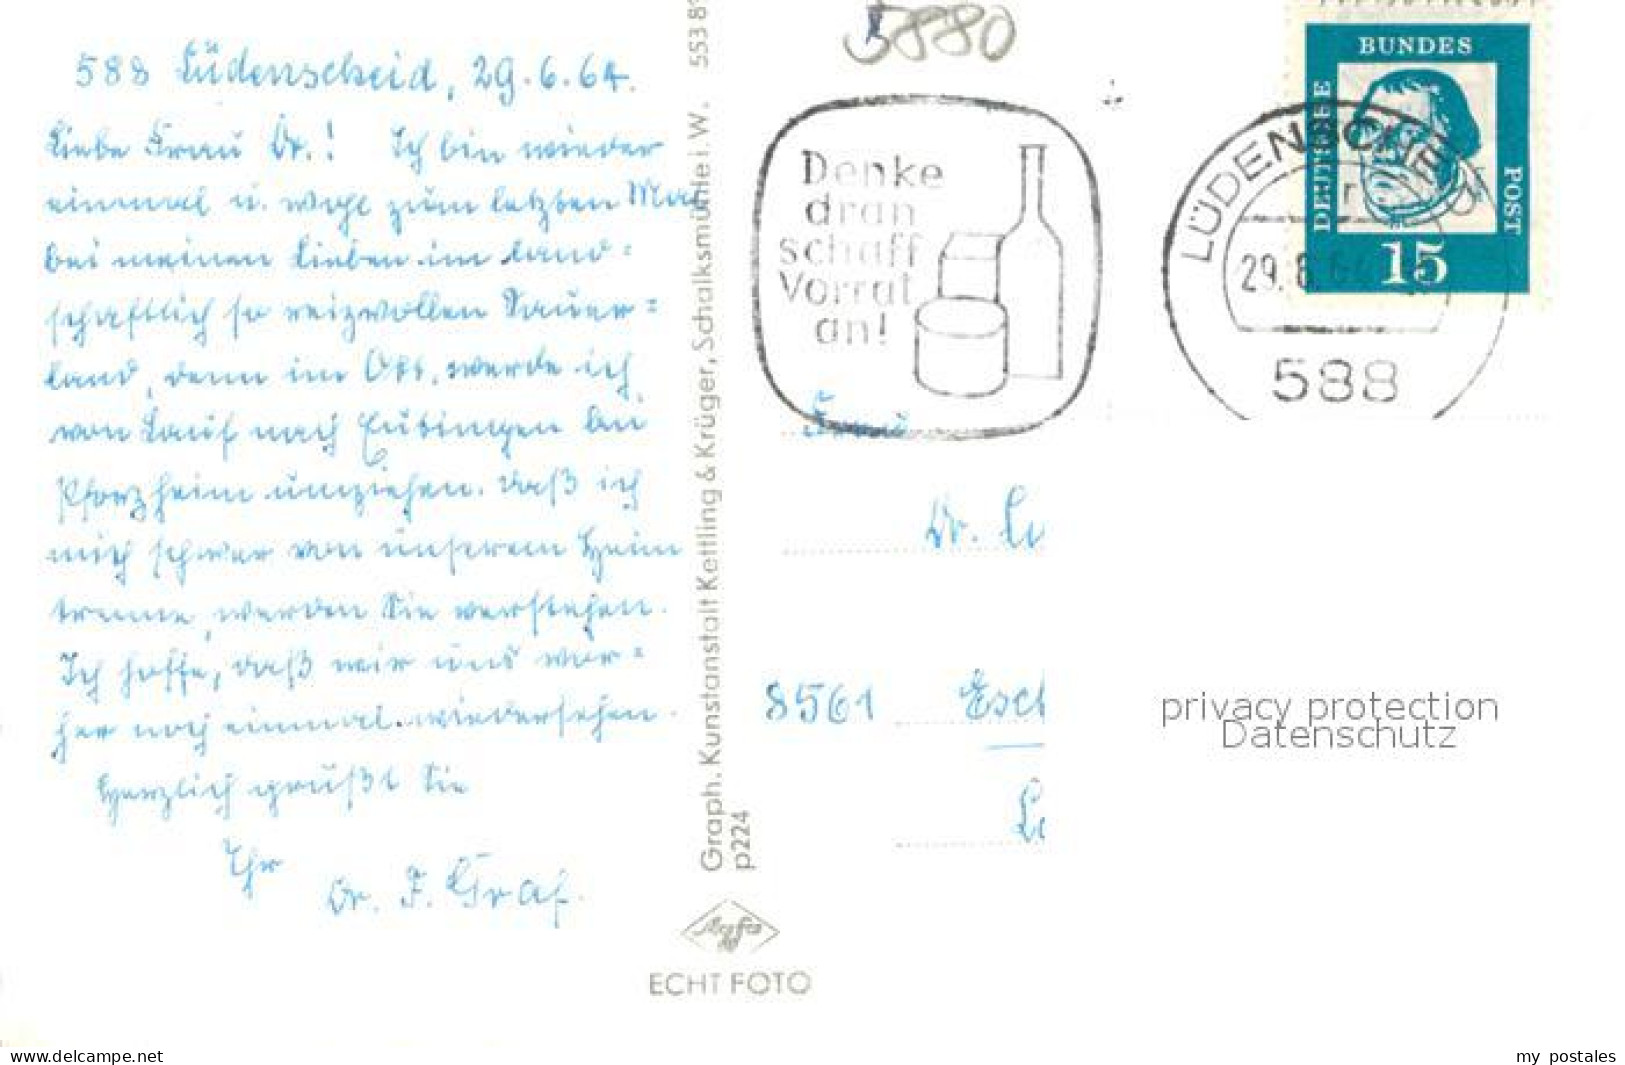 5880
588 Lüdenscheid, 29.6.64.
Liebe Frau Dr.! Ich bin wieder
einmal u. wohl zum letzten Mal
bei meinen Lieben im land-
schaftlich so reizvollen Sauer-
land, denn im Okt. werde ich
von Lauf nach Eutingen bei
Pforzheim umziehen. Daß ich
mich schwer von unserem Heim
trenne, werden Sie verstehen.
Ich hoffe, daß wir uns vor-
her noch einmal wiedersehen.
Herzlich grüßt Sie
Ihr
Dr. F. Graf.
Graph. Kunstanstalt Kettling & Krüger, Schalksmühle i. W. 553 8
p224
Agfa
ECHT FOTO
Denke
dran
schaff
Vorrat
an!
LÜDENSCHEID
29.6.64
588
DEUTSCHE
BUNDES
POST
15
Frau
Dr.
8561
privacy protection
Datenschutz
www.delcampe.net
my_postales